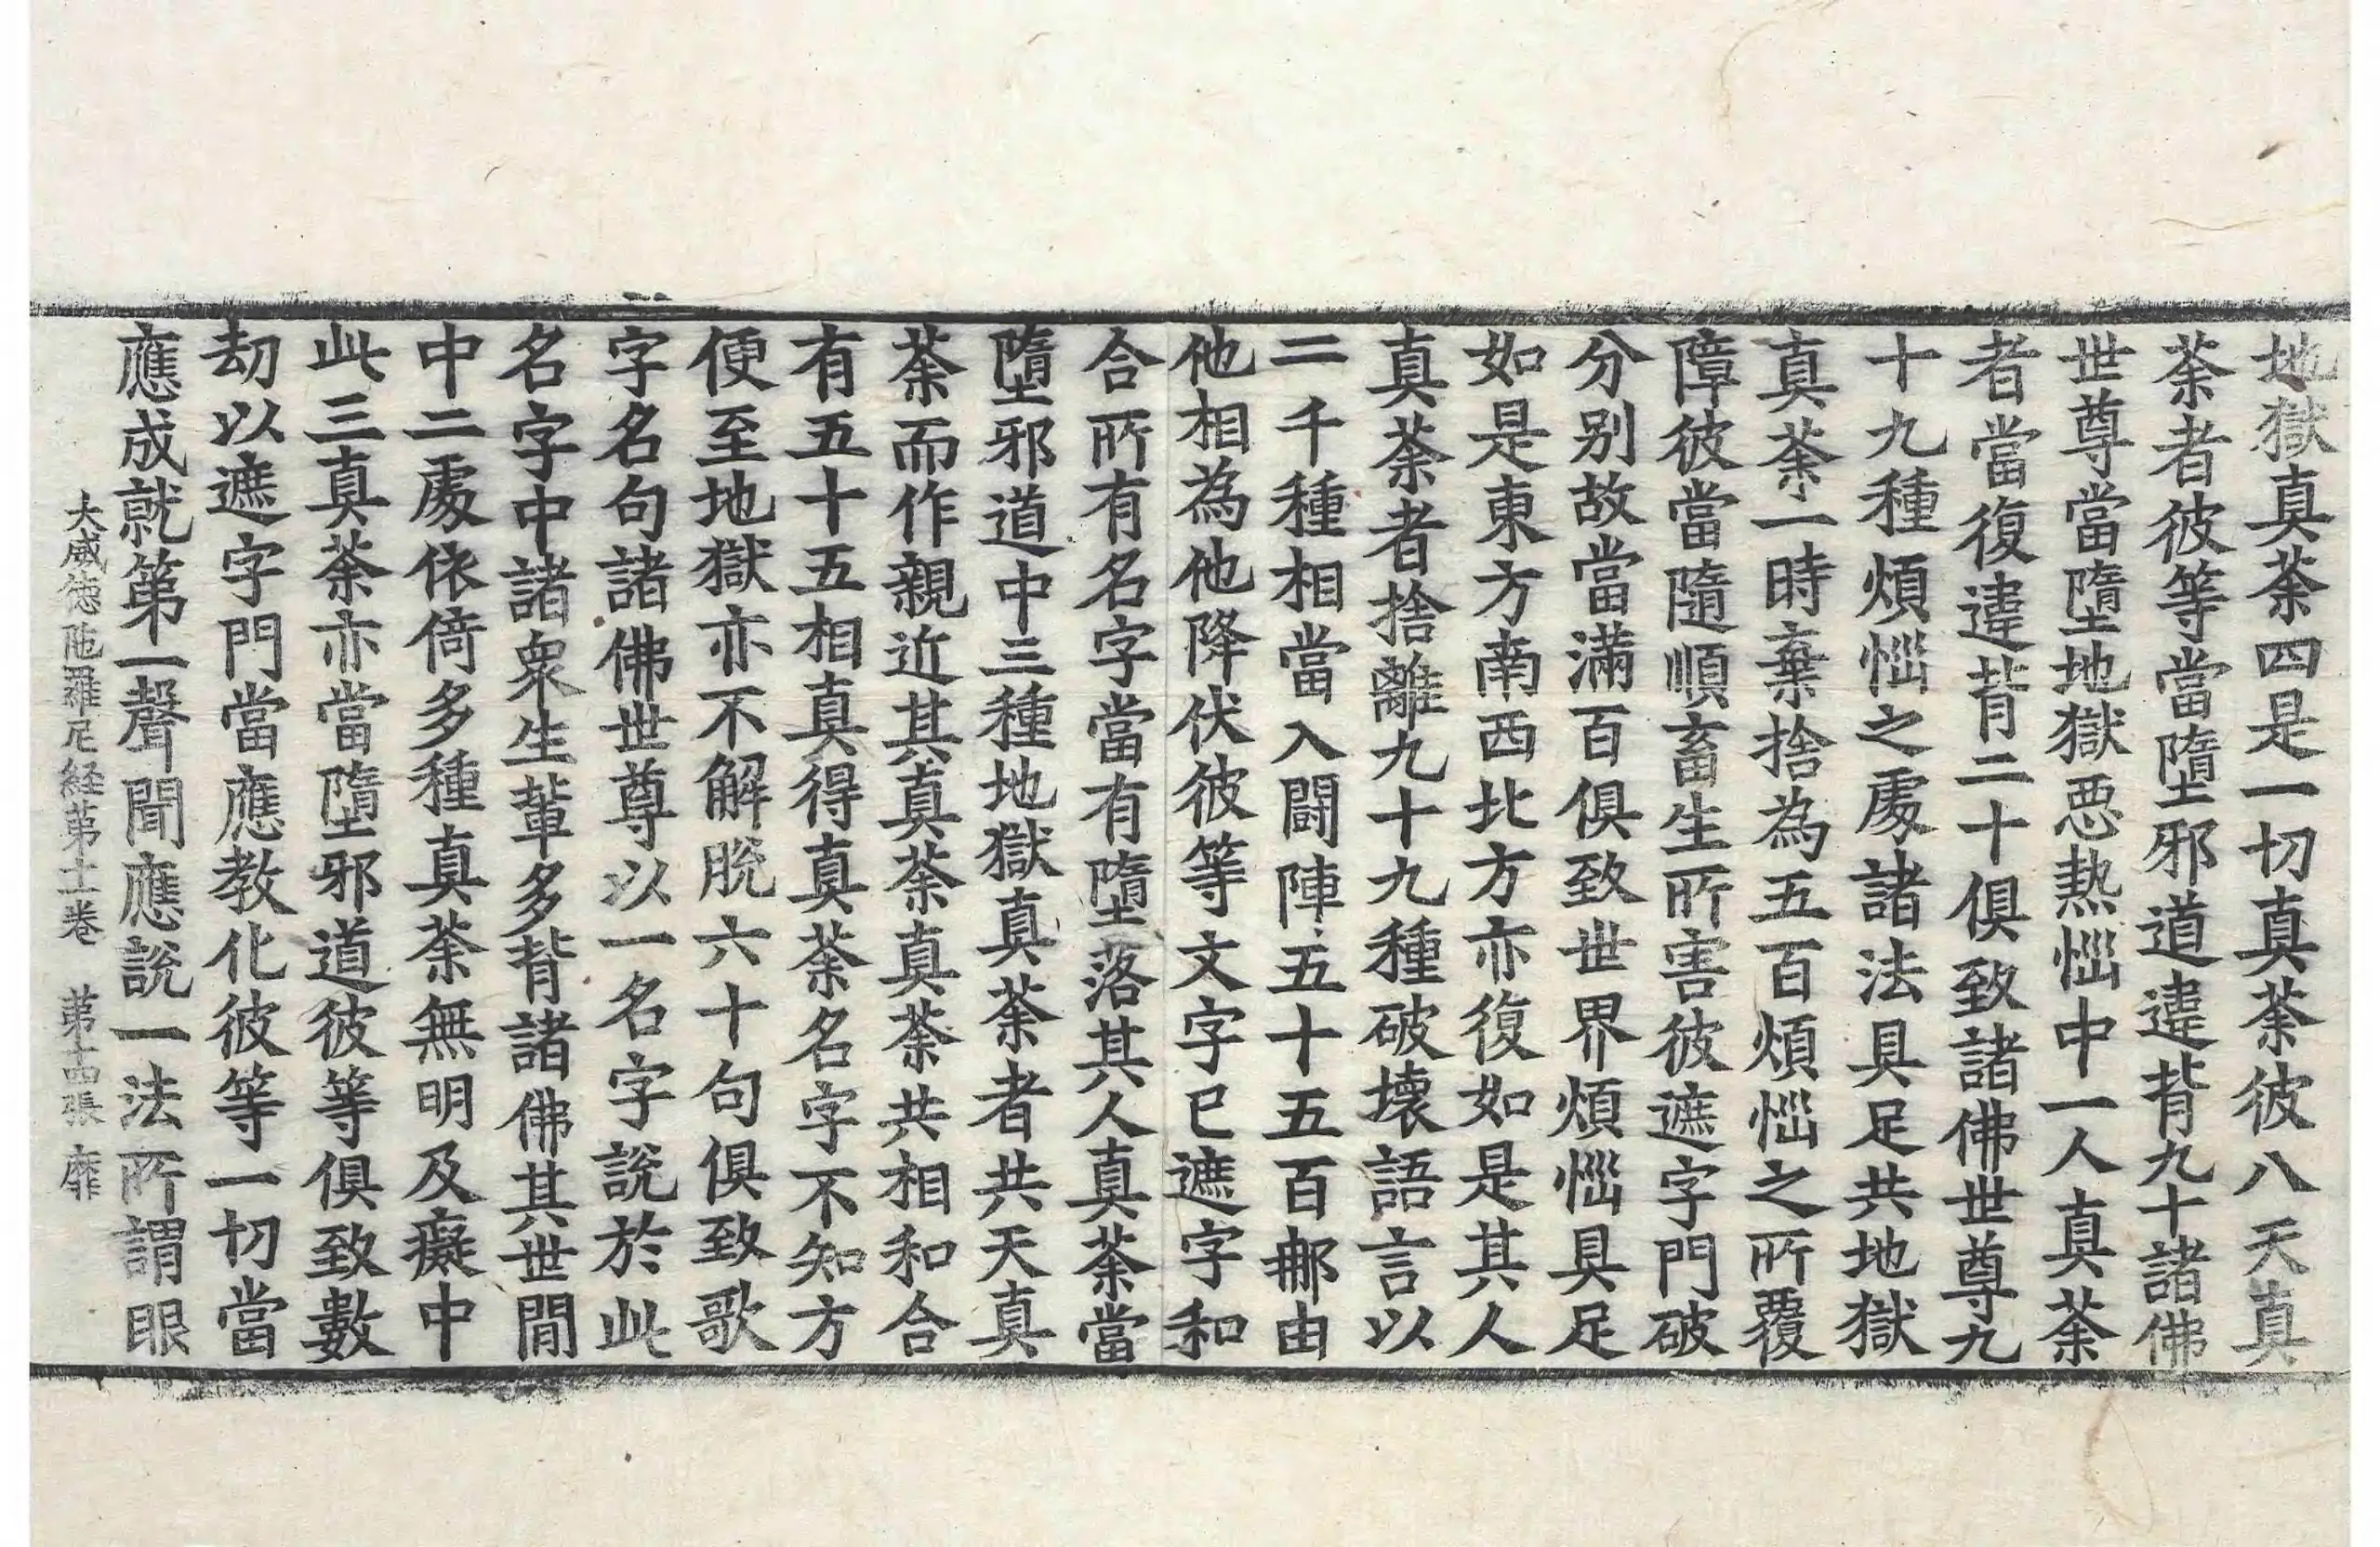 地獄真荼四是一切真荼彼八天真
荼者彼等當墮邪道違背九十諸佛
世尊當墮地獄惡熱惱中一人真荼
者當復違背二十俱致諸佛世尊九
十九種煩惱之處諸法具足共地獄
真荼一時棄捨為五百煩惱之所覆
障彼當隨順畜生所害彼遮字門破
分別故當滿百俱致世界煩惱具足
如是東方南西北方亦復如是其人
真荼者捨離九十九種破壞語言以
二千種相當入鬪陣五十五百那由
他相為他降伏彼等文字已遮字和
合所有名字當有墮落其人真荼當
墮邪道中三種地獄真荼者共天真
荼而作親近其真荼真荼共相和合
有五十五相真得真荼名字不知方
便至地獄亦不解脫六十句俱致歌
字名句諸佛世尊以一名字說於此
名字中諸衆生輩多背諸佛其世間
中二處依倚多種真荼無明及癡中
此三真荼亦當墮邪道彼等俱致數
劫以遮字門當應教化彼等一切當
應成就第一聲聞應說一法所謂眼
大威徳陁羅尼経第十二卷 第十四張 靡